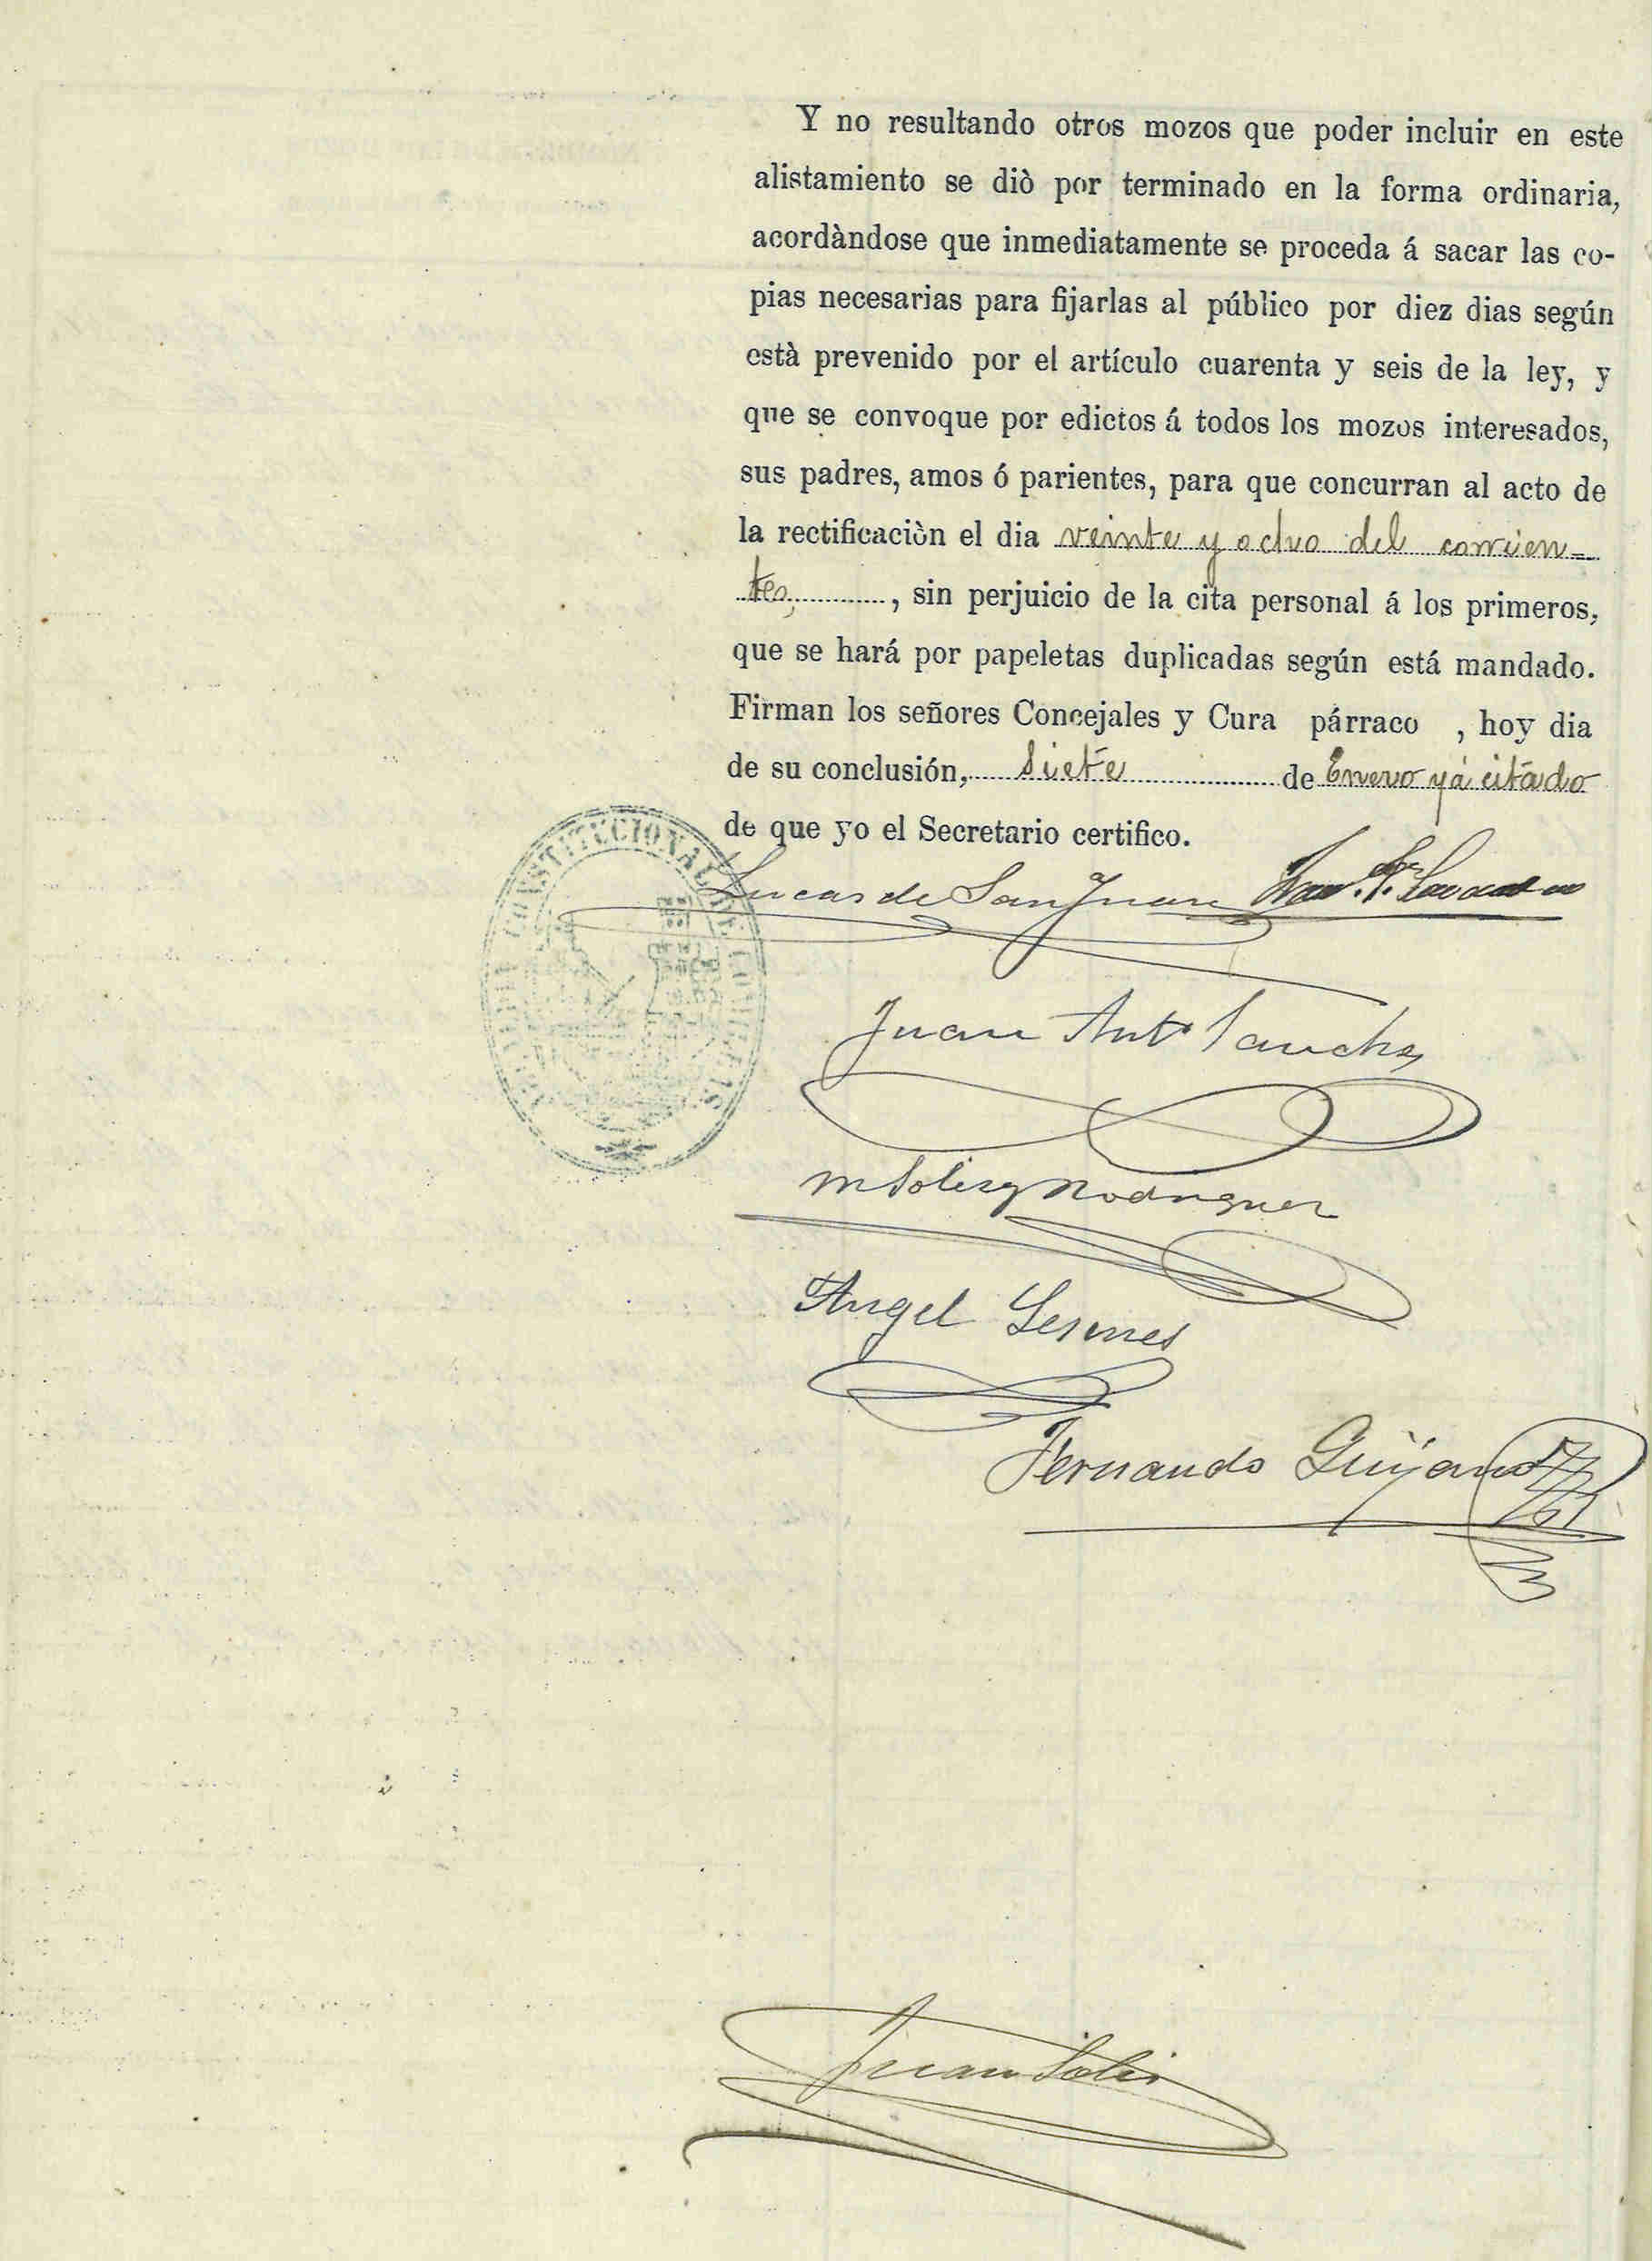 Y no resultando otros mozos que poder incluir en este
alistamiento se diò por terminado en la forma ordinaria,
acordàndose que inmediatamente se proceda á sacar las co-
pias necesarias para fijarlas al público por diez dias según
està prevenido por el artículo cuarenta y seis de la ley, y
que se convoque por edictos á todos los mozos interesados,
sus padres, amos ó parientes, para que concurran al acto de
la rectificaciòn el dia veinte y ocho del corrien=
te, , sin perjuicio de la cita personal á los primeros,
que se hará por papeletas duplicadas según está mandado.
Firman los señores Concejales y Cura párraco , hoy dia
de su conclusión, siete de Enero yá citado
de que yo el Secretario certifico.
Lucas de San Juan
CONSTITUCIONAL DE
Juan Antº Sanchez
M Solis y Rodriguez
Angel Lesmes
Fernando
Juan Solis